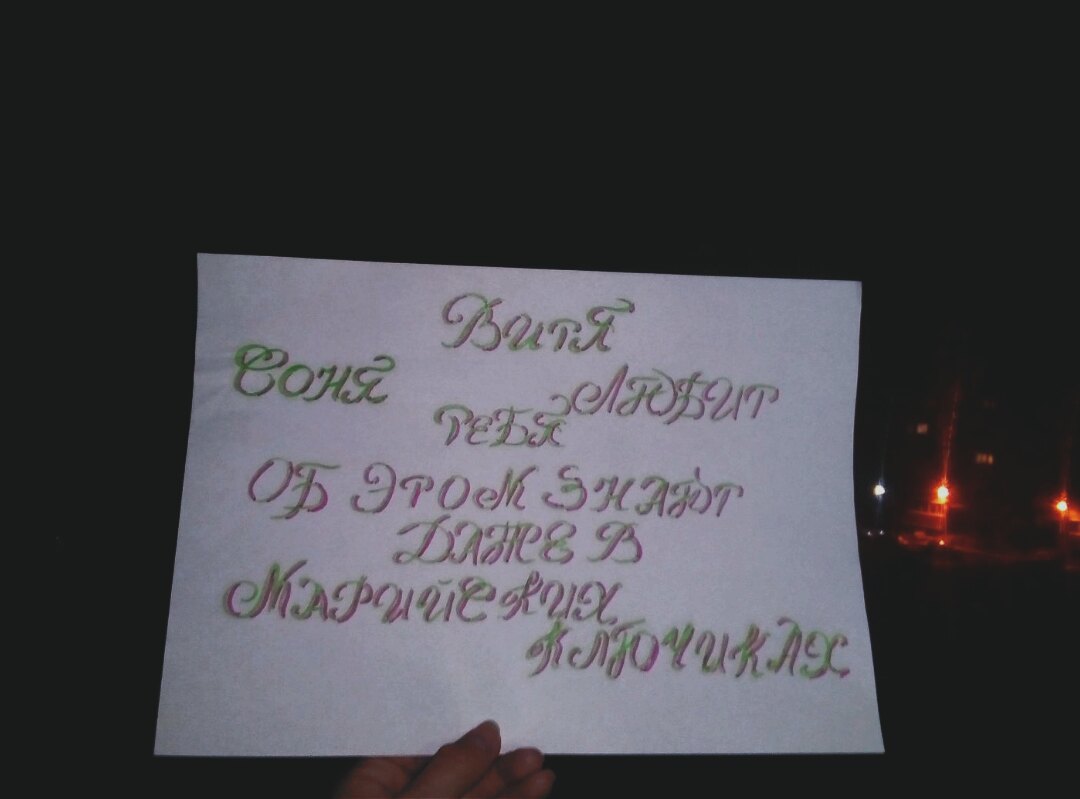 Витя
Соня
любит
тебя
об этом знают
даже в
Марийских
ключиках